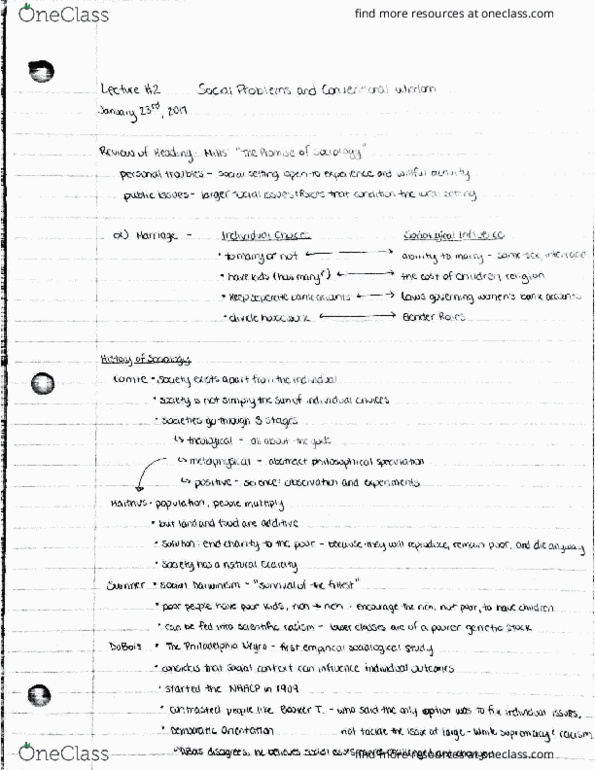 OneClass
find more resources at oneclass.com
Lecture #2 Social Problems and Conventional Wisdom
January 23rd, 2017
Review of Reading: Mills' "The Promise of Sociology"
personal troubles - social setting open to experience and willful activity
public issues - larger social issues/forces that condition the local setting
ex) Marriage - Individual Choices Sociological Influence
• to marry or not ↔ ability to marry - same-sex, interrace
• have kids (how many?) ↔ the cost of children, religion
• keep seperate bank accounts ↔ laws governing women's bank accounts
• divide housework ↔ Gender Roles
History of Sociology
Comte • society exists apart from the individual
• society is not simply the sum of individual choices
• societies go through 3 stages
↳ theological - all about the gods
↳ metaphysical - abstract philosophical speculation
↳ positive - science! observation and experiments
Malthus • population, people multiply
• but land and food are additive
• solution: end charity to the poor - because they will reproduce, remain poor, and die anyway
• society has a natural scarcity
Sumner • Social Darwinism - "survival of the fittest"
• poor people have poor kids, rich → rich : encourage the rich, not poor, to have children
• can be fed into scientific racism - lower classes are of a poorer genetic stock
DuBois • The Philadelphia Negro - first empirical sociological study
• considers that social context can influence individual outcomes
• started the NAACP in 1909
• contrasted people like Booker T. - who said the only option was to fix individual issues,
• Democratic orientation not tackle the issue at large - white supremacy & racism
disagrees, he believes social
OneClass
find more resources at oneclass.com